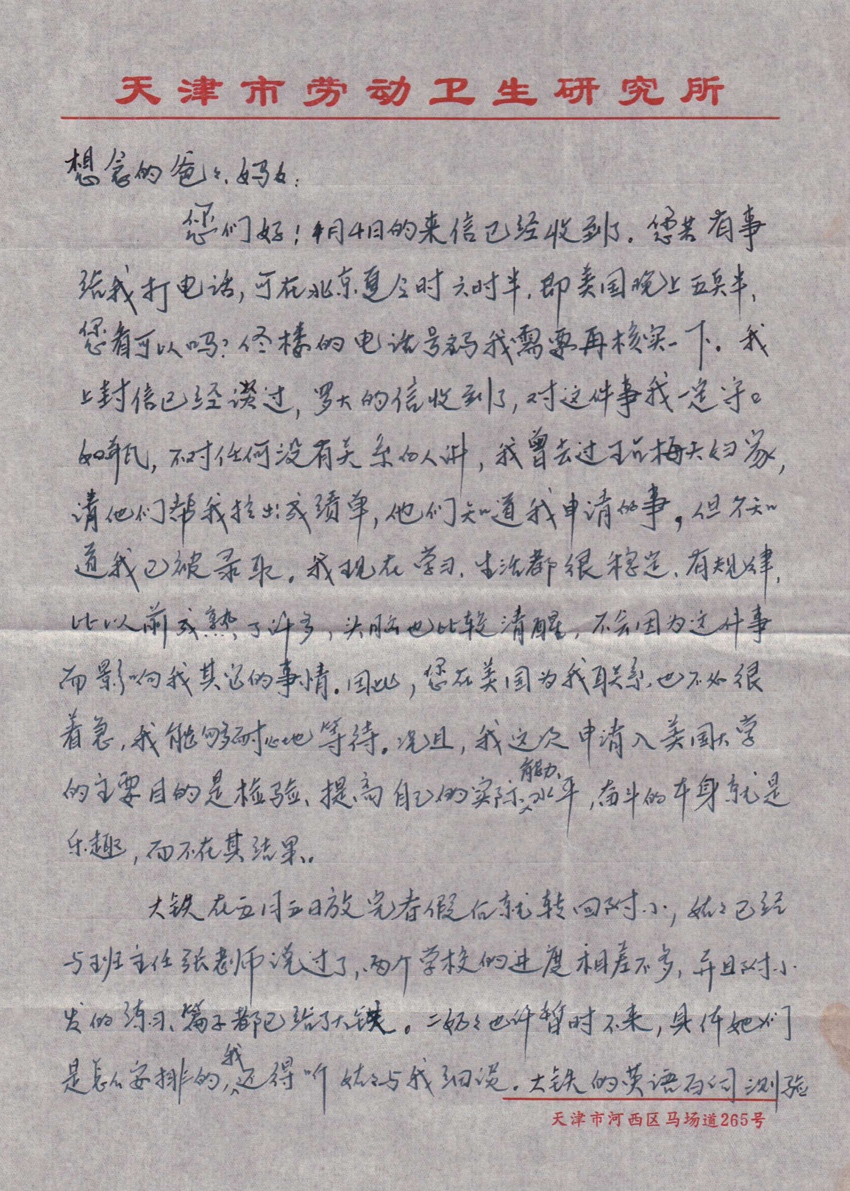 天津市劳动卫生研究所
想念的爸々、妈々：
您们好！4月4日的来信已经收到了。您若有事
给我打电话，可在北京夏令时六时半，即美国晚上五点半，
您看可以吗？佟楼的电话号码我需要再核实一下。我
上封信已经谈过，罗大的信收到了，对这件事我一定守口
如瓶，不对任何没有关系的人讲，我曾去过王品梅夫妇家，
请他们帮我打出成绩单，他们知道我申请的事，但不知
道我已被录取。我现在学习、生活都很稳定、有规律，
比以前成熟了许多，头脑也比较清醒，不会因为这件事
而影响我其它的事情。因此，您在美国为我联系，也不必很
着急，我能够耐心地等待。况且，我这次申请入美国大学
的主要目的是检验、提高自己的实际能力、水平，奋斗的本身就是
乐趣，而不在其结果。
大铁在五月五日放完春假后就转回附小，姑々已经
与班主任张老师说过了，两个学校的进度相差不多，并且附小
发的练习、篇子都已给了大铁。二奶々也许暂时不来，具体她们
是怎么安排的，我还得听姑々与我细说。大铁的英语百词测验
天津市河西区马场道265号